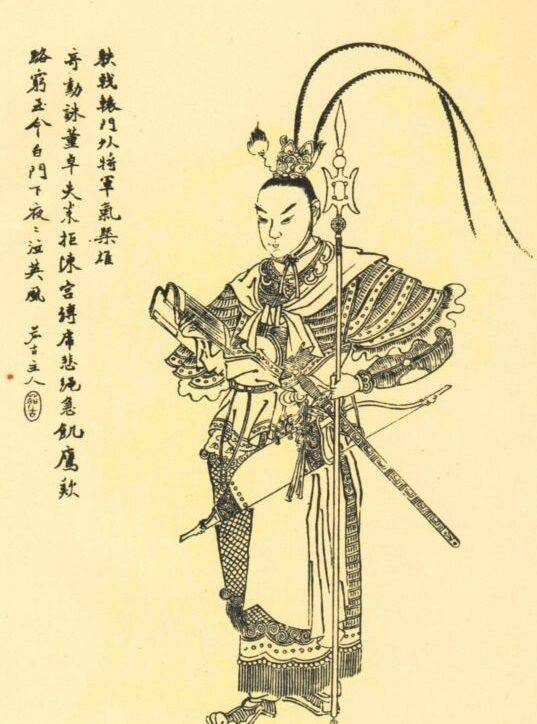 䠶戟轅門外將軍氣槩雄
奇勳誅董卓失策拒陳宮縛虎悲繩急飢鷹歎
路窮至今白門下夜〻泣英風 茹古主人